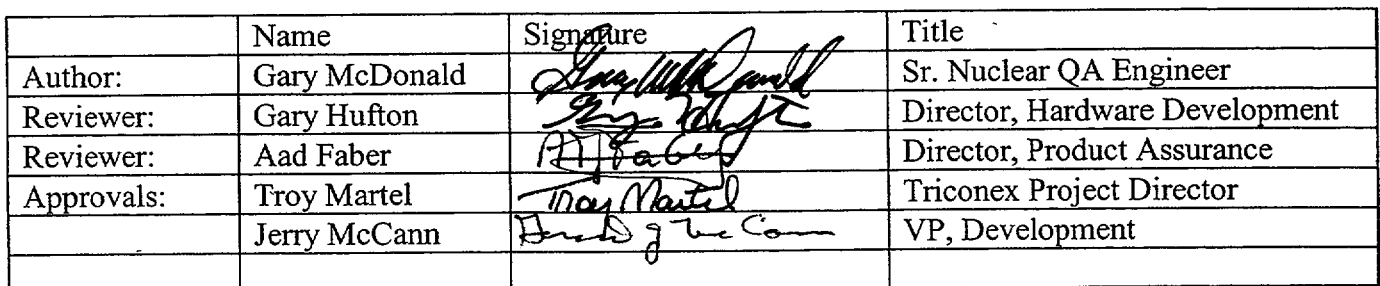 Name Signature Title
Author: Gary McDonald Gary McDonald Sr. Nuclear QA Engineer
Reviewer: Gary Hufton Gary Hufton Director, Hardware Development
Reviewer: Aad Faber AJ Faber Director, Product Assurance
Approvals: Troy Martel Troy Martel Triconex Project Director
Jerry McCann Gerald J McCann VP, Development